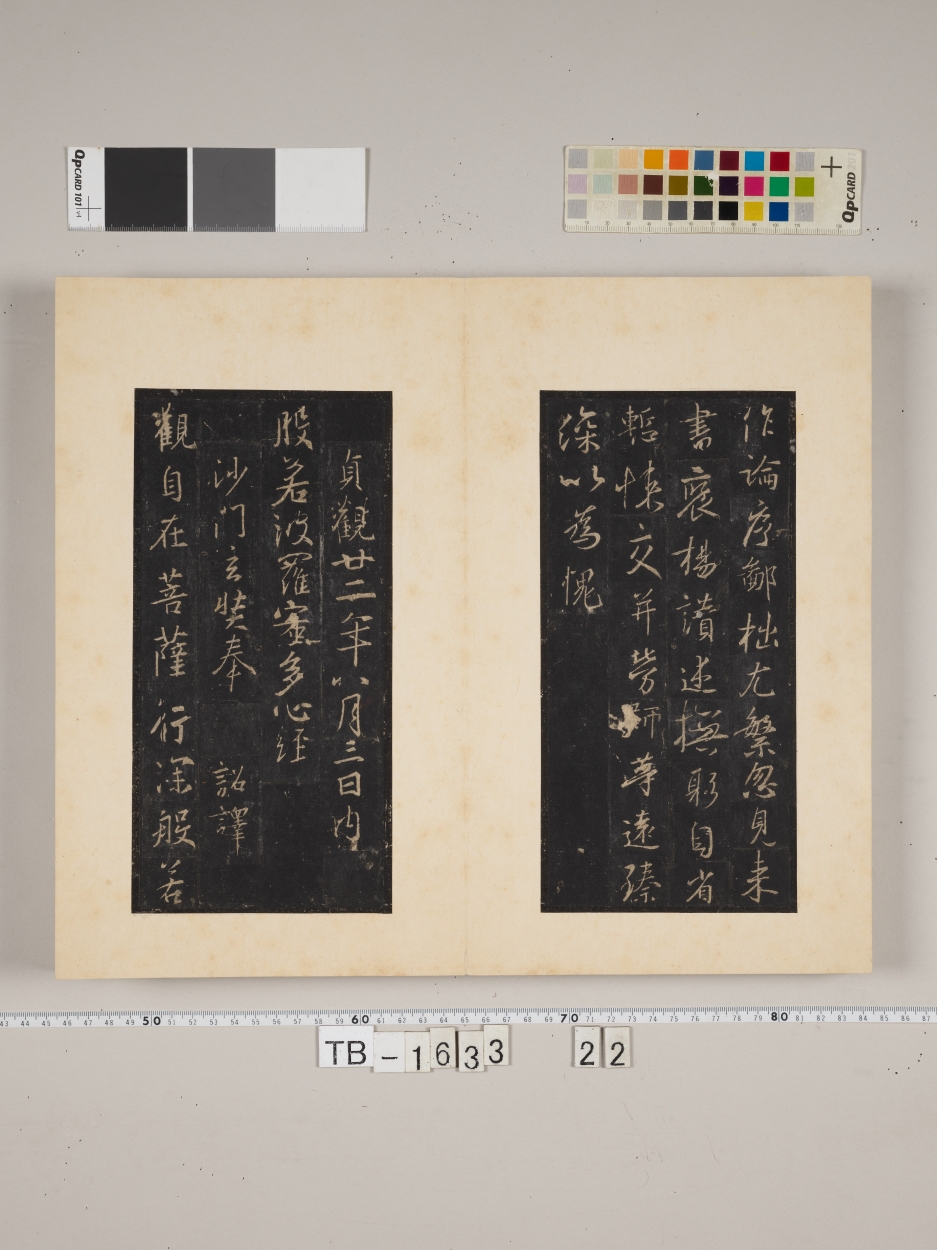 作論序鄙拙尤繁忽見来
書褒揚讃述撫躬自省
慙悚交并勞師等遠臻
深以為愧
貞觀廿二年八月三日内
般若波羅蜜多心經
沙門玄奘奉 詔譯
觀自在菩薩行深般若
QPCARD 101 v4
QPCARD 201
43 44 45 46 47 48 49 50 51 52 53 54 55 56 57 58 59 60 61 62 63 64 65 66 67 68 69 70 71 72 73 74 75 76 77 78 79 80 81 82 83 84 85 86 87
TB-1633 22